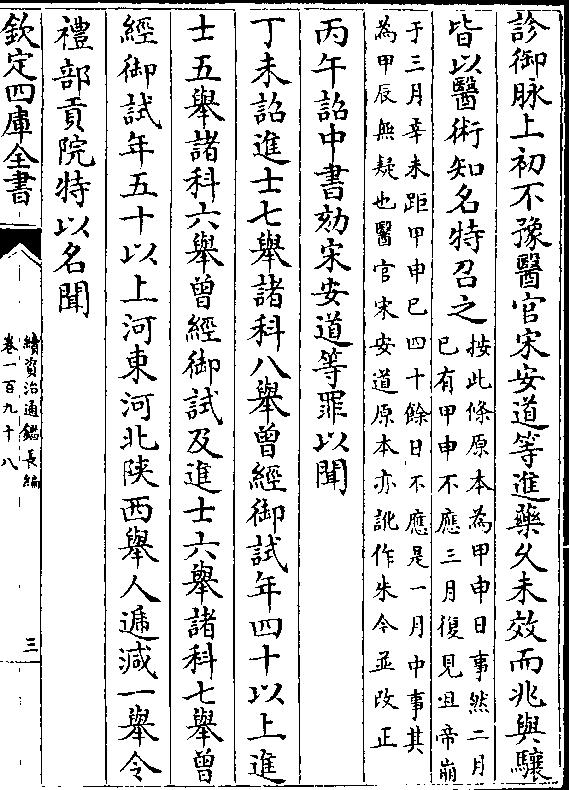 診御脉上初不豫醫官宋安道等進藥久未效而兆與驤
皆以醫術知名特召之
按此條原本為甲申日事然二月
已有甲申不應三月復見且帝崩
于三月辛未距甲申已四十餘日不應是一月中事其
為甲辰無疑也醫官宋安道原本亦訛作朱今並改正
丙午詔中書劾宋安道等罪以聞
丁未詔進士七舉諸科八舉曾經御試年四十以上進
士五舉諸科六舉曾經御試及進士六舉諸科七舉曾
經御試年五十以上河東河北陝西舉人遞減一舉令
禮部貢院特以名聞
欽定四庫全書
續資治通鑑長編
卷一百九十八
三